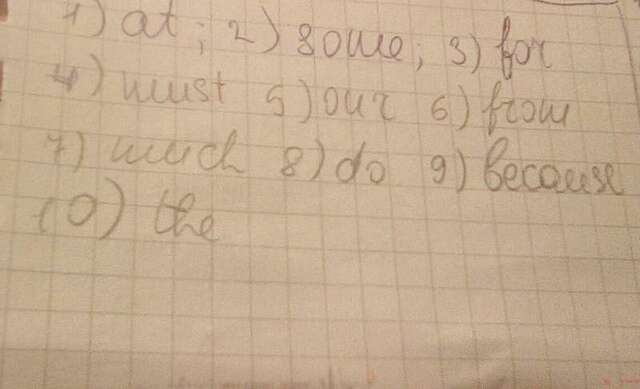 1) at; 2) some; 3) for
4) must 5) our 6) from
7) much 8) do 9) because
10) the